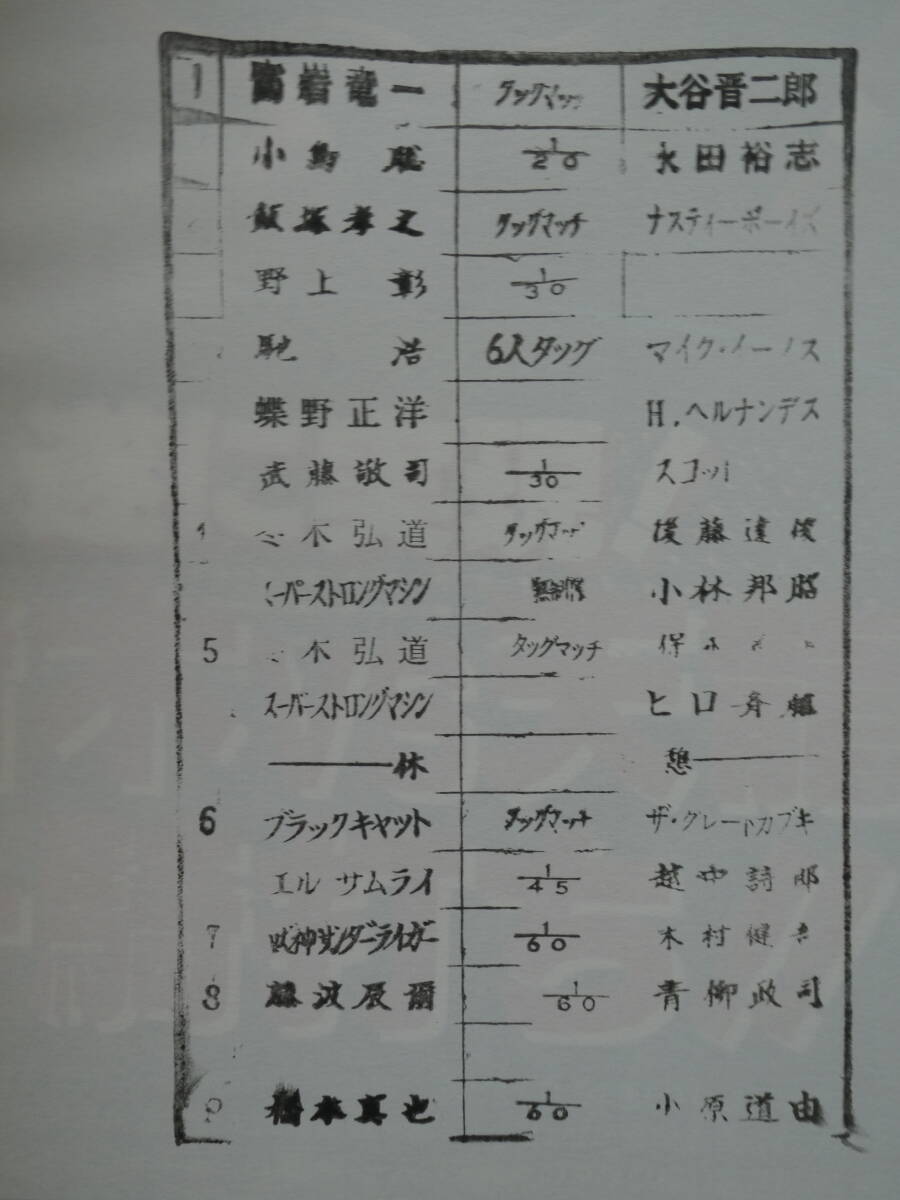 1 高岩竜一 タッグマッチ 大谷晋二郎
小島聡 1/20 永田裕志
飯塚孝之 タッグマッチ ナスティーボーイズ
野上彰 1/30
馳浩 6人タッグ マイク・イーノス
蝶野正洋 H.ヘルナンデス
武藤敬司 1/30
木弘道 タッグマッチ 後藤達俊
スーパーストロングマシン 無制限 小林邦昭
5 木弘道 タッグマッチ 保
スーパーストロングマシン ヒロ斉藤
休 憩
6 ブラックキャット タッグマッチ ザ・グレートカブキ
エルサムライ 1/45 越中詩郎
7 獣神サンダーライガー 1/60 木村健吾
8 藤波辰爾 1/60 青柳政司
9 橋本真也 1/60 小原道由